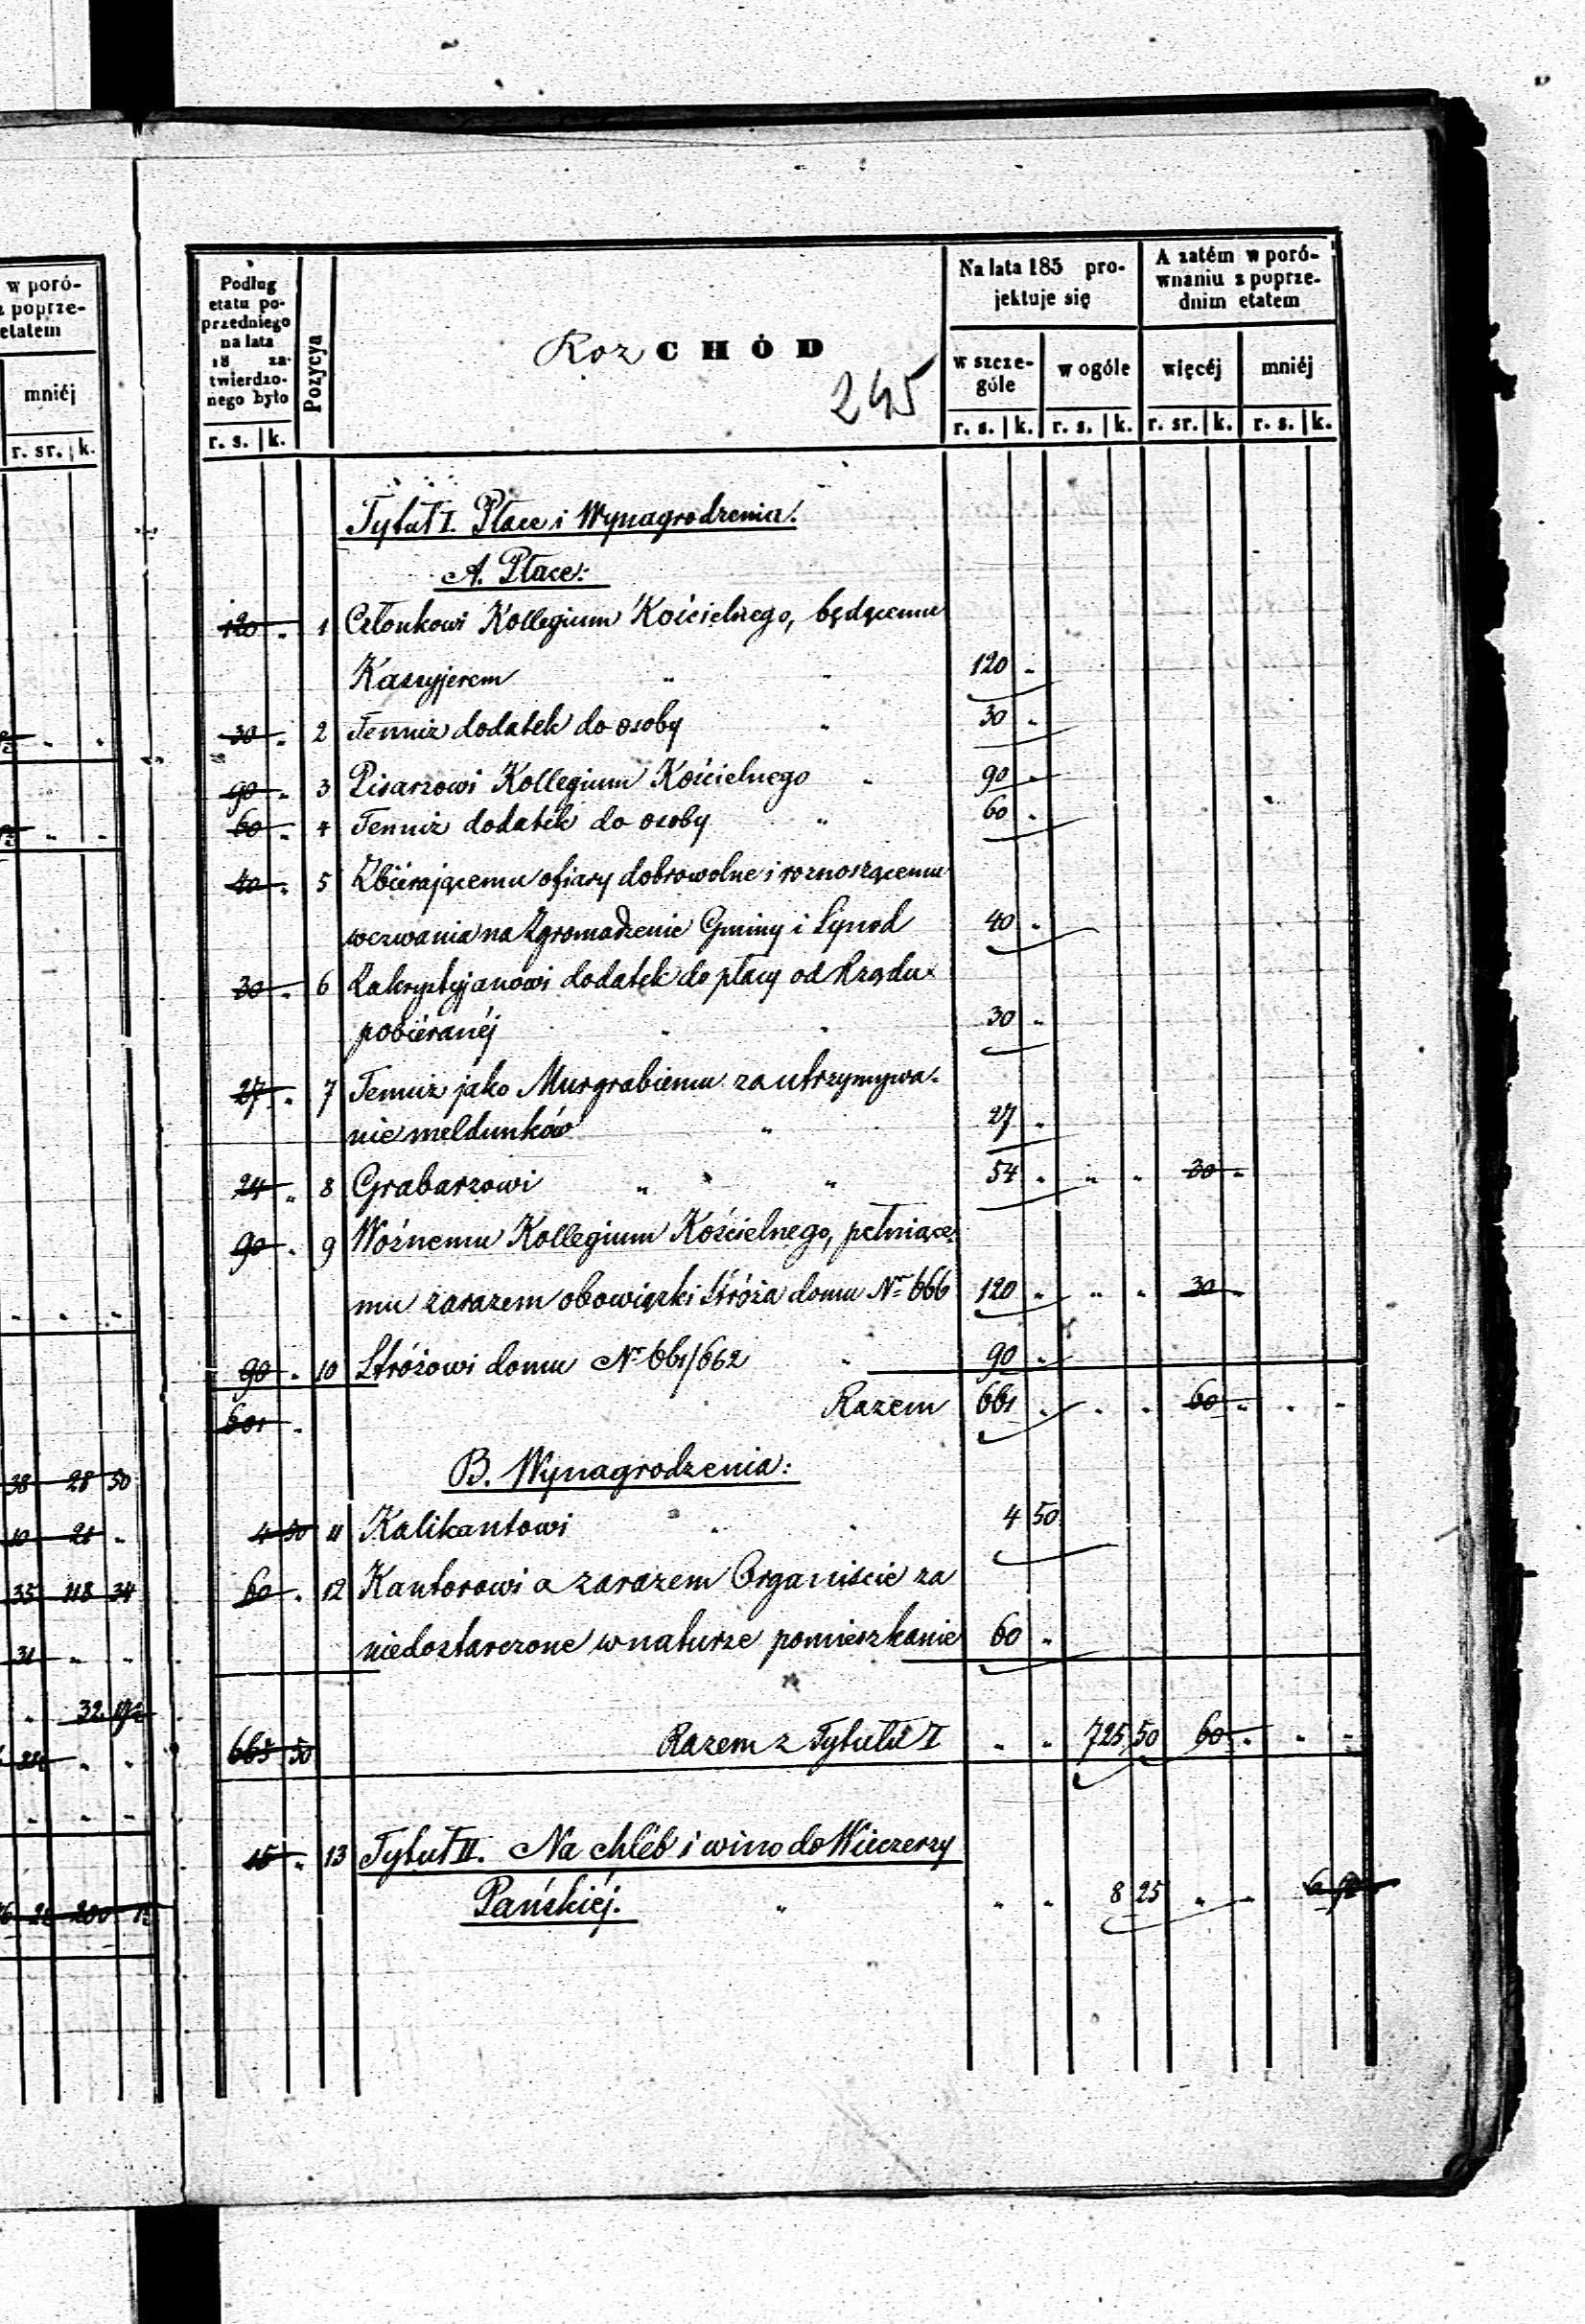 w poró-
z poprze-
etatem
mniéj
r. sr. k.
38 28 50
10 21 "
35 118 34
31 " "
" 32
Podług etatu po-
przedniego
na lata
18 za-
twierdzo-
nego było
r. s. k.
Pozycya
RozCHÓD
245
Na lata 185 pro-
jektuje się
w szcze-
góle
w ogóle
r. s. k. r. s. k.
A zatém w poró-
wnaniu z poprze-
dnim etatem
więcéj mniéj
r. sr. k. r. s. k.
Tytuł I. Płace i Wynagrodzenia.
A. Płace:
120 " 1 Członkowi Kollegium Kościelnego, będącemu
Kassyjerem " " 120 "
30 " 2 Temuż dodatek do osoby " 30 "
90 " 3 Pisarzowi Kollegium Kościelnego " 90 "
60 " 4 Temuż dodatek do osoby " 60 "
40 " 5 Zbiérającemu ofiary dobrowolne i roznoszącemu
wezwania na Zgromadzenie Gminy i Synod 40 "
30 " 6 Zakrystyjanowi dodatek do płacy od Rządu
pobiéranéj " " 30 "
27 " 7 Temuż jako Murgrabiemu za utrzymywa-
nie meldunków " 27 "
24 " 8 Grabarzowi " " " 54 " " " 30 "
90 " 9 Woźnemu Kollegium Kościelnego, pełniące-
mu zarazem obowiązki Stróża domu Nr 666 120 " " " 30 "
90 " 10 Stróżowi domu Nr 661/662 " 90 "
601 " Razem 661 " " " 60 " " "
B. Wynagrodzenia:
4 50 11 Kalikantowi " " 4 50
60 " 12 Kantorowi a zarazem Organiście za
niedostarczone w naturze pomieszkanie 60 "
665 50 Razem z Tytułu I " " 725 50 60 " " "
15 " 13 Tytuł II. Na chléb i wino do Wieczerzy
Pańskiéj. " " " 8 25 " " 6